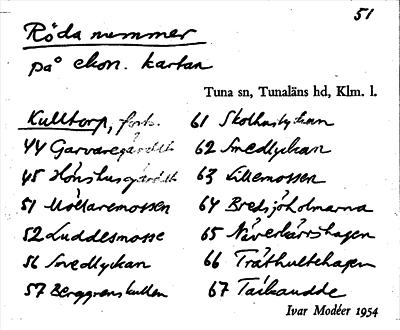 51
Röda nummer
på ekon. kartan
Tuna sn, Tunaläns hd, Klm. l.
Kulltorp, forts.
44 Garvaregärdet
45 Hönshusgärdet
51 Möllaremossen
52 Luddesmosse
56 Smedlyckan
57 Berggrenskullen
61 Skolhuslyckan
62 Smedlyckan
63 Lillemossen
64 Bredsjöholmarna
65 Näverkärrshagen
66 Tråthultehagen
67
Ivar Modéer 1954